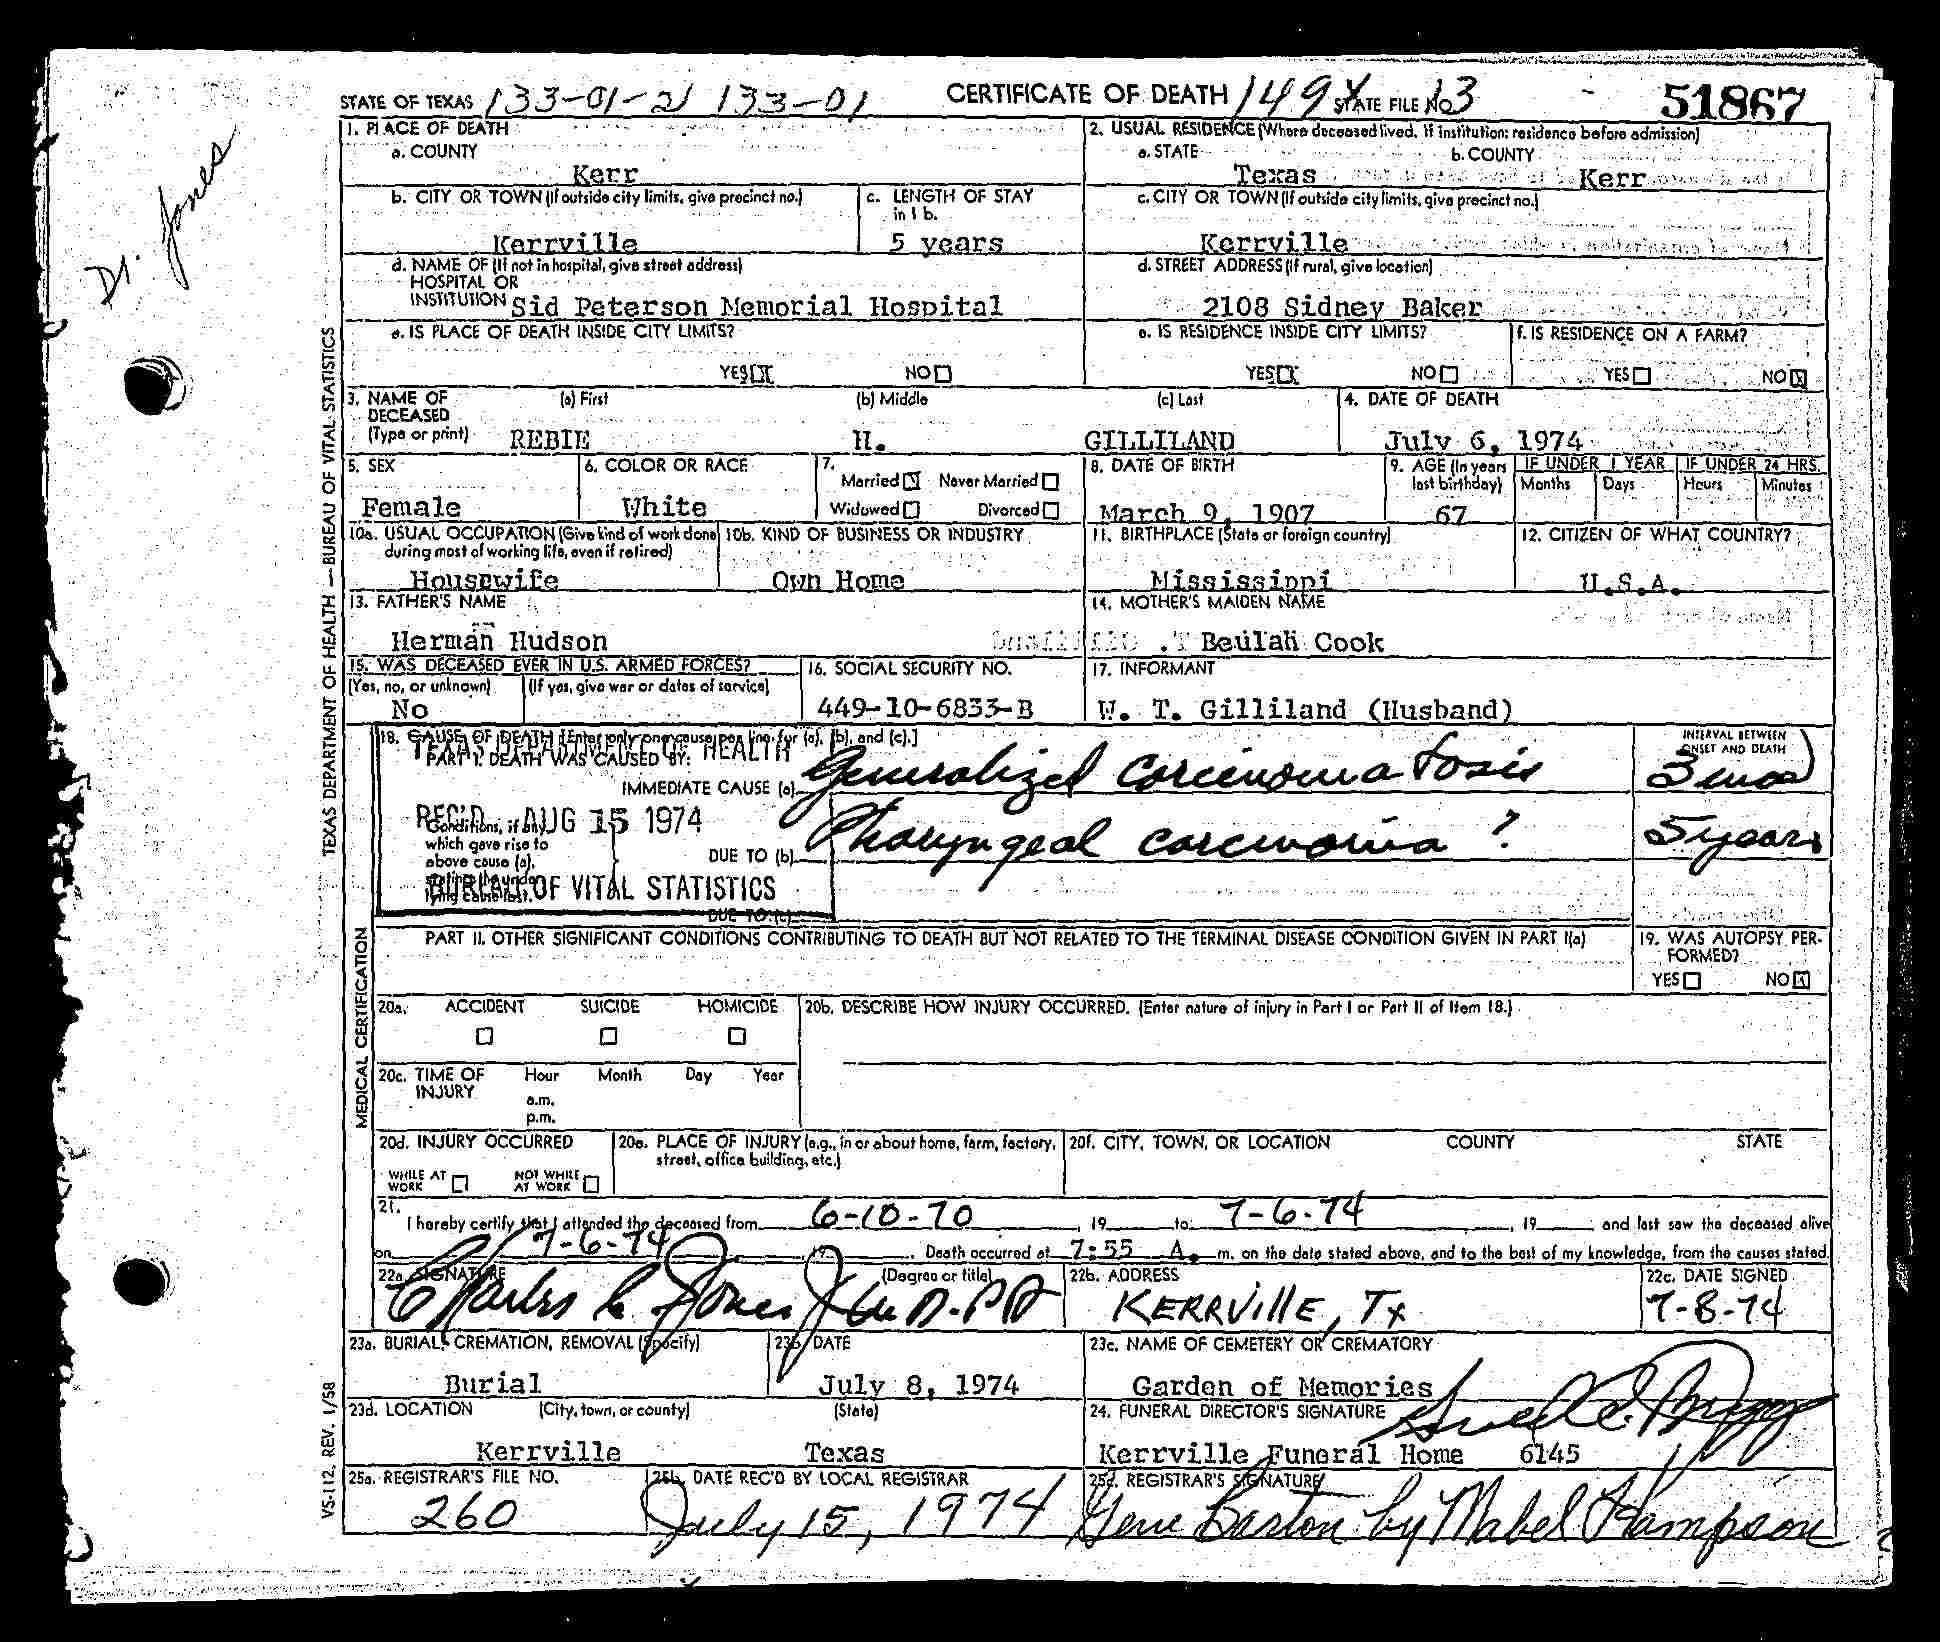 Dr. Jones
STATE OF TEXAS 133-01-2 133-01 CERTIFICATE OF DEATH 149X STATE FILE NO. 13 51867
1. PLACE OF DEATH
a. COUNTY
Kerr
2. USUAL RESIDENCE (Where deceased lived. If institution: residence before admission)
a. STATE b. COUNTY
Texas Kerr
b. CITY OR TOWN (If outside city limits, give precinct no.)
Kerrville
c. LENGTH OF STAY in 1 b.
5 years
c. CITY OR TOWN (If outside city limits, give precinct no.)
Kerrville
d. NAME OF (If not in hospital, give street address)
HOSPITAL OR
INSTITUTION Sid Peterson Memorial Hospital
d. STREET ADDRESS (If rural, give location)
2108 Sidney Baker
e. IS PLACE OF DEATH INSIDE CITY LIMITS?
YES X NO
e. IS RESIDENCE INSIDE CITY LIMITS?
YES X NO
f. IS RESIDENCE ON A FARM?
YES NO X
3. NAME OF DECEASED (Type or print)
(a) First (b) Middle (c) Last
REBIE H. GILLILAND
4. DATE OF DEATH
July 6, 1974
5. SEX
Female
6. COLOR OR RACE
White
7.
Married X Never Married
Widowed Divorced
8. DATE OF BIRTH
March 9, 1907
9. AGE (In years last birthday)
67
IF UNDER 1 YEAR IF UNDER 24 HRS.
Months Days Hours Minutes
10a. USUAL OCCUPATION (Give kind of work done during most of working life, even if retired)
Housewife
10b. KIND OF BUSINESS OR INDUSTRY
Own Home
11. BIRTHPLACE (State or foreign country)
Mississippi
12. CITIZEN OF WHAT COUNTRY?
U.S.A.
13. FATHER'S NAME
Herman Hudson
14. MOTHER'S MAIDEN NAME
Beulah Cook
15. WAS DECEASED EVER IN U.S. ARMED FORCES?
(Yes, no, or unknown) (If yes, give war or dates of service)
No
16. SOCIAL SECURITY NO.
449-10-6833-B
17. INFORMANT
W. T. Gilliland (Husband)
18. CAUSE OF DEATH [Enter only one cause per line for (a), (b), and (c).]
TEXAS DEPARTMENT OF HEALTH
PART I. DEATH WAS CAUSED BY:
INTERVAL BETWEEN ONSET AND DEATH
IMMEDIATE CAUSE (a) Generalized carcinomatosis 3 mos
REC'D AUG 15 1974
Conditions, if any, which gave rise to above cause (a), stating the underlying cause last.
DUE TO (b) Pharyngeal carcinoma ? 5 years
BUREAU OF VITAL STATISTICS
DUE TO (c)
PART II. OTHER SIGNIFICANT CONDITIONS CONTRIBUTING TO DEATH BUT NOT RELATED TO THE TERMINAL DISEASE CONDITION GIVEN IN PART I(a)
19. WAS AUTOPSY PERFORMED?
YES NO X
20a. ACCIDENT SUICIDE HOMICIDE
20b. DESCRIBE HOW INJURY OCCURRED. (Enter nature of injury in Part I or Part II of Item 18.)
20c. TIME OF INJURY
Hour Month Day Year
a.m.
p.m.
20d. INJURY OCCURRED
WHILE AT WORK NOT WHILE AT WORK
20e. PLACE OF INJURY (e.g., in or about home, farm, factory, street, office building, etc.)
20f. CITY, TOWN, OR LOCATION COUNTY STATE
21. I hereby certify that I attended the deceased from 6-10-70, 19 to 7-6-74, 19 and last saw the deceased alive
on 7-6-74, 19 . Death occurred at 7:55 A. m. on the date stated above, and to the best of my knowledge, from the causes stated.
22a. SIGNATURE (Degree or title)
Charles C Jones Jr
22b. ADDRESS
KERRVILLE, Tx
22c. DATE SIGNED
7-8-74
23a. BURIAL, CREMATION, REMOVAL (Specify)
Burial
23b. DATE
July 8, 1974
23c. NAME OF CEMETERY OR CREMATORY
Garden of Memories
23d. LOCATION (City, town, or county) (State)
Kerrville Texas
24. FUNERAL DIRECTOR'S SIGNATURE
Kerrville Funeral Home 6145
25a. REGISTRAR'S FILE NO.
260
25b. DATE REC'D BY LOCAL REGISTRAR
July 15, 1974
25c. REGISTRAR'S SIGNATURE
Gene Barton by Mabel Hampson
TEXAS DEPARTMENT OF HEALTH — BUREAU OF VITAL STATISTICS
MEDICAL CERTIFICATION
VS-112. REV. 1/58